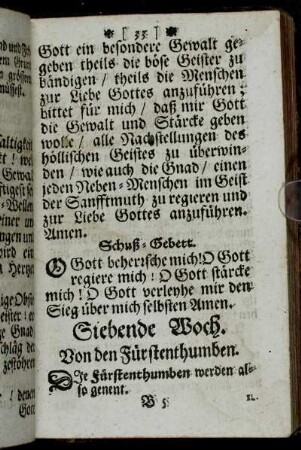 [ 33 ]
Gott ein besondere Gewalt ge-
geben theils die böse Geister zu
bändigen / theils die Menschen
zur Liebe Gottes anzuführen ;
bittet für mich / daß mir Gott
die Gewalt und Stärcke geben
wolle / alle Nachstellungen des
höllischen Geistes zu überwin-
den / wie auch die Gnad / einen
jeden Neben-Menschen im Geist
der Sanfftmuth zu regieren und
zur Liebe Gottes anzuführen.
Amen.
Schuß-Gebett.
O Gott beherische mich! O Gott
regiere mich ! O Gott stärcke
mich ! O Gott verleyhe mir den
Sieg über mich selbsten Amen.
Siebende Woch.
Von den Fürstenthumben.
DJe Fürstenthumben werden al-
so genent.
B 5